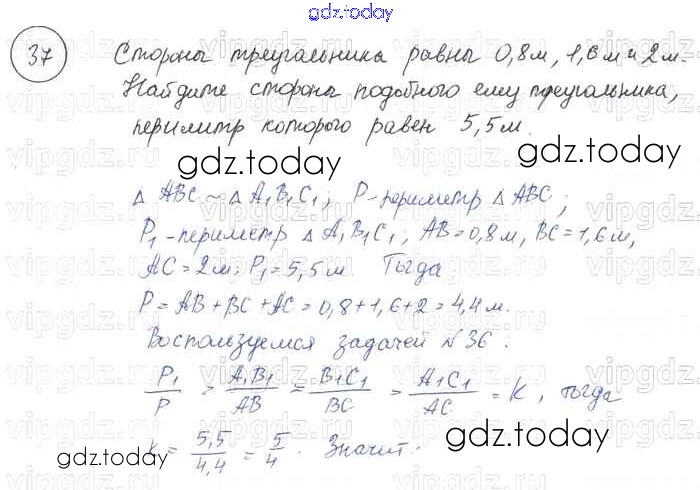 gdz.today
37 Стороны треугольника равны 0,8 м, 1,6 м и 2 м.
Найдите стороны подобного ему треугольника,
периметр которого равен 5,5 м.
gdz.today gdz.today
Δ ABC ~ Δ A₁B₁C₁; P-периметр Δ ABC;
P₁-периметр Δ A₁B₁C₁; AB=0,8 м, BC=1,6 м,
AC=2 м; P₁=5,5 м. Тогда
P=AB+BC+AC=0,8+1,6+2=4,4 м.
Воспользуемся задачей №36:
P₁/P = A₁B₁/AB = B₁C₁/BC = A₁C₁/AC = K, тогда
K = 5,5/4,4 = 5/4. Значит:
gdz.today gdz.today